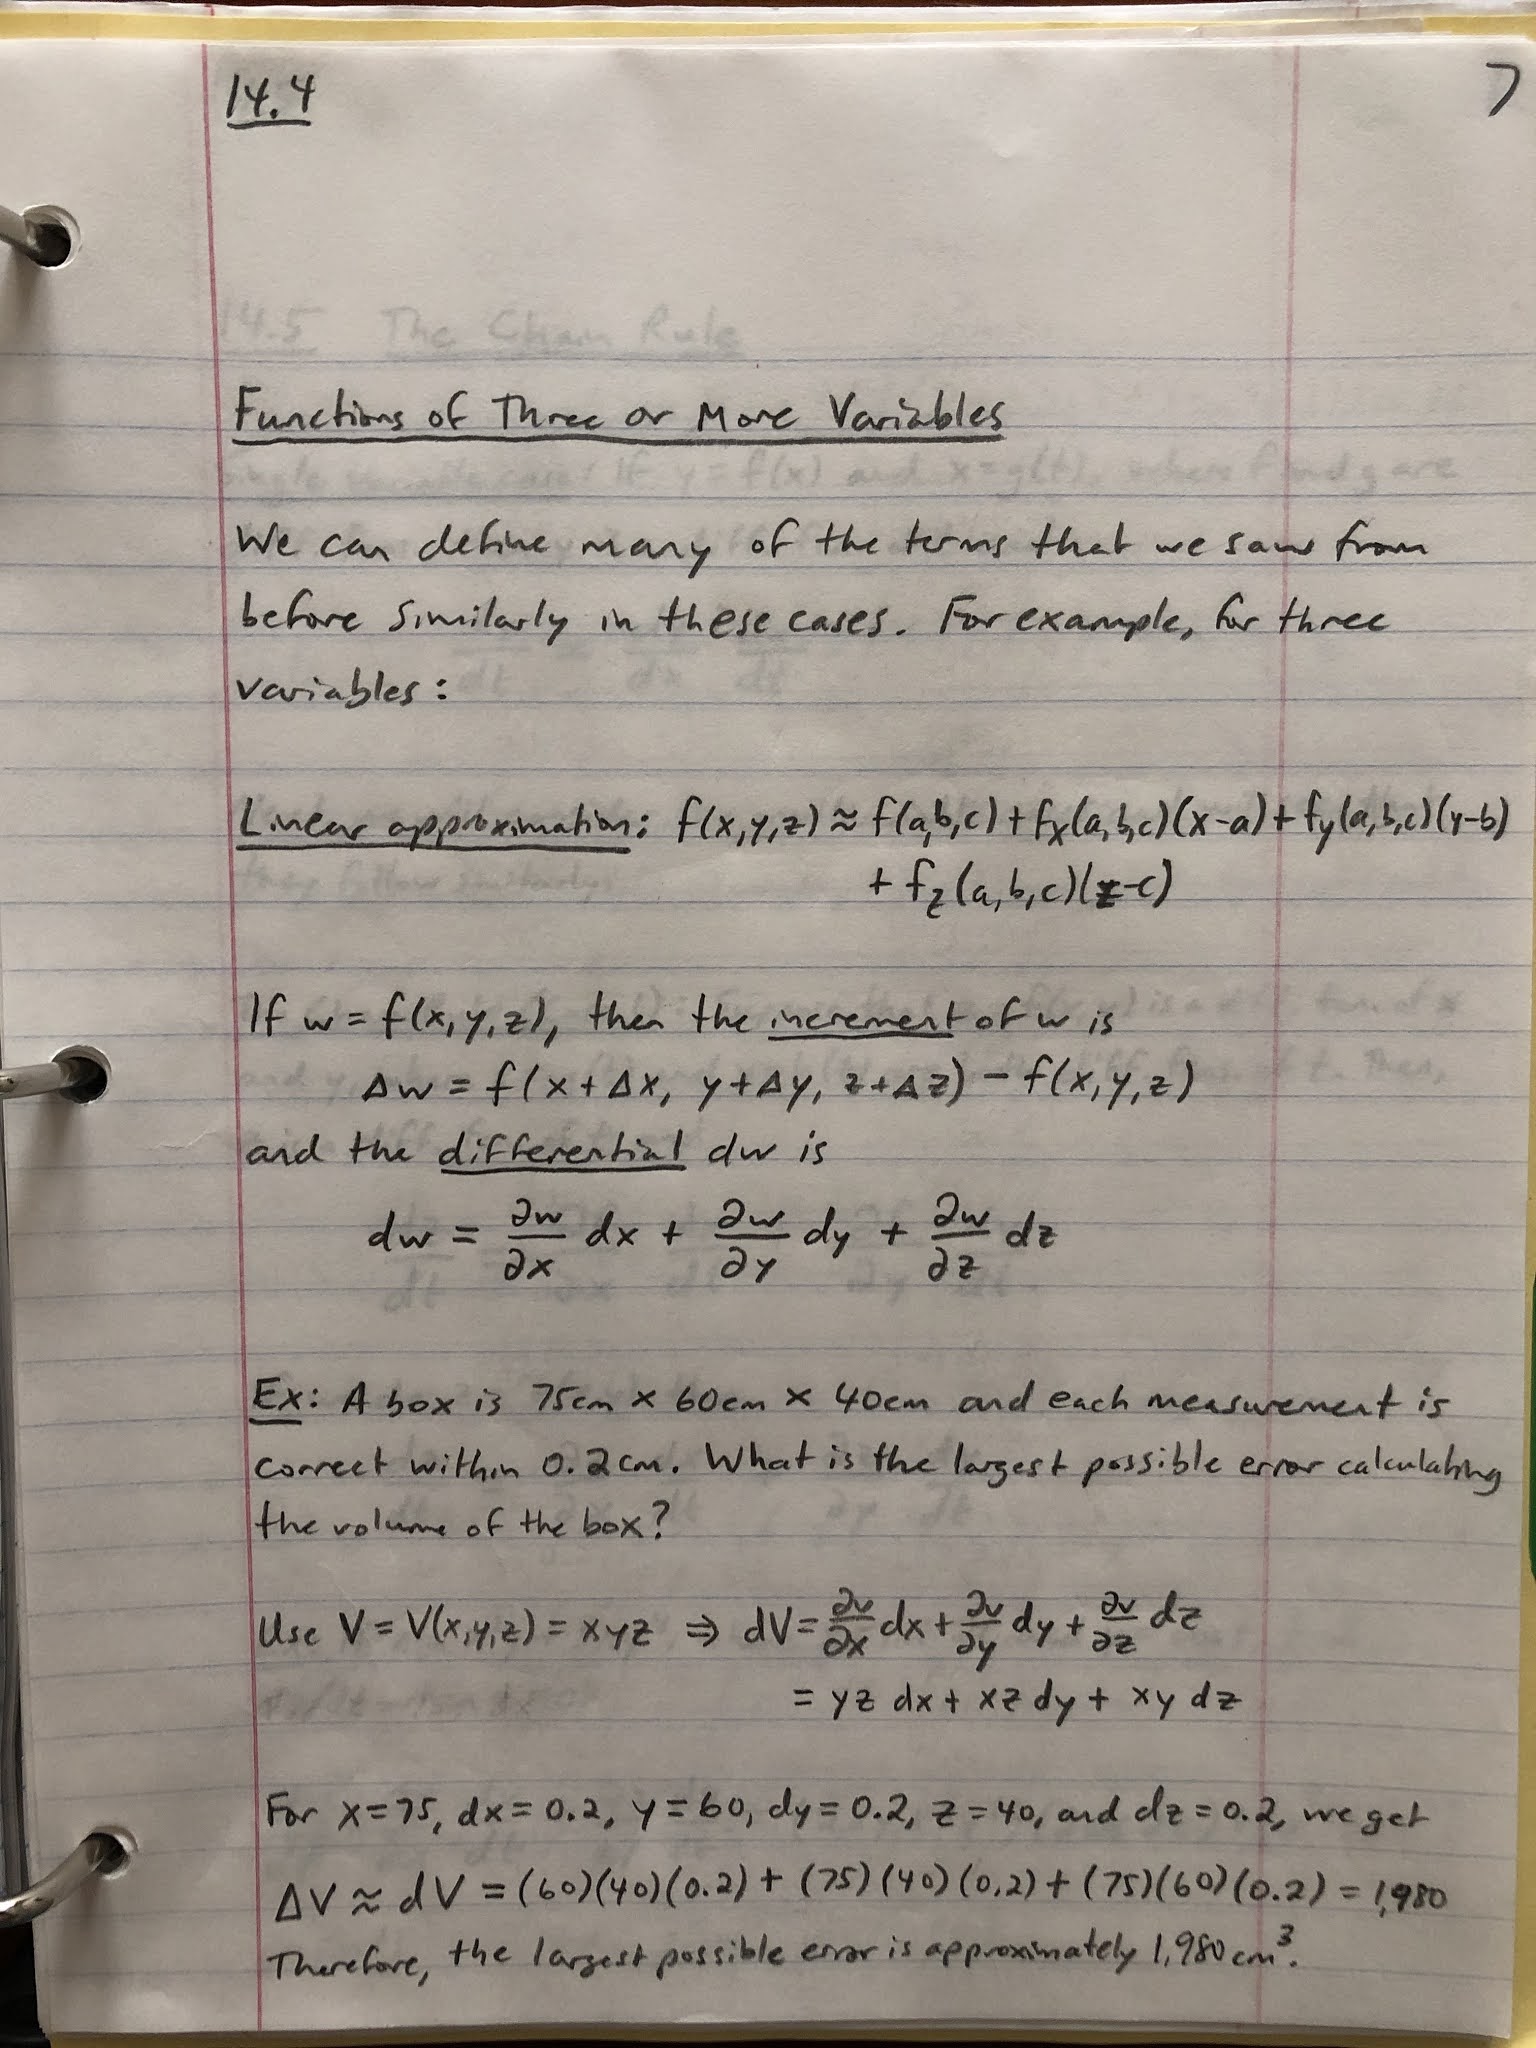 14.4
7
14.5 The Chain Rule
Functions of Three or More Variables
We can define many of the terms that we saw from
before similarly in these cases. For example, for three
variables:
Linear approximation: f(x,y,z) ≈ f(a,b,c) + fₓ(a,b,c)(x-a) + f_y(a,b,c)(y-b)
+ f_z(a,b,c)(z-c)
If w = f(x,y,z), then the increment of w is
Δw = f(x+Δx, y+Δy, z+Δz) - f(x,y,z)
and the differential dw is
dw = ∂w/∂x dx + ∂w/∂y dy + ∂w/∂z dz
Ex: A box is 75cm × 60cm × 40cm and each measurement is
correct within 0.2cm. What is the largest possible error calculating
the volume of the box?
Use V = V(x,y,z) = xyz ⇒ dV = ∂v/∂x dx + ∂v/∂y dy + ∂v/∂z dz
= yz dx + xz dy + xy dz
For x=75, dx=0.2, y=60, dy=0.2, z=40, and dz=0.2, we get
ΔV ≈ dV = (60)(40)(0.2) + (75)(40)(0.2) + (75)(60)(0.2) = 1,980
Therefore, the largest possible error is approximately 1,980 cm³.